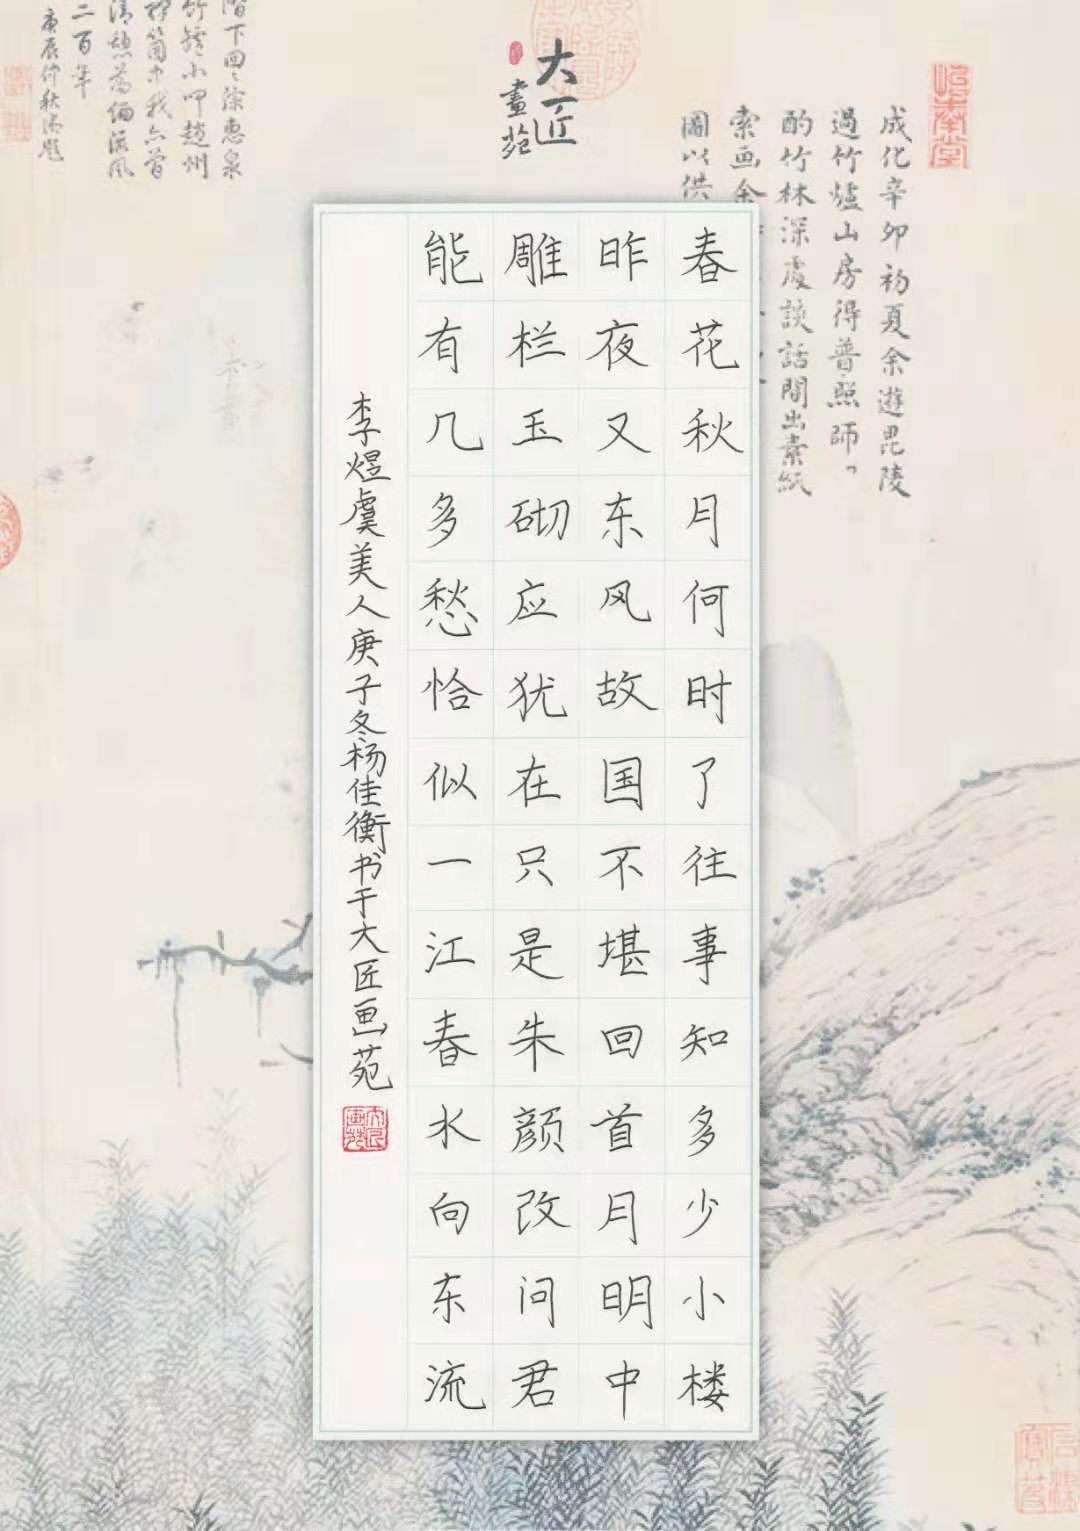 大匠
畫苑
春花秋月何时了往事知多少小楼
昨夜又东风故国不堪回首月明中
雕栏玉砌应犹在只是朱颜改问君
能有几多愁恰似一江春水向东流
李煜虞美人庚子冬杨佳衡书于大匠画苑
大匠画苑
成化辛卯初夏余游毘陵
過竹爐山房得普照師
酌竹林深處談話間出素紙
索画余
圖以供
階下回
竹爐小
二百年